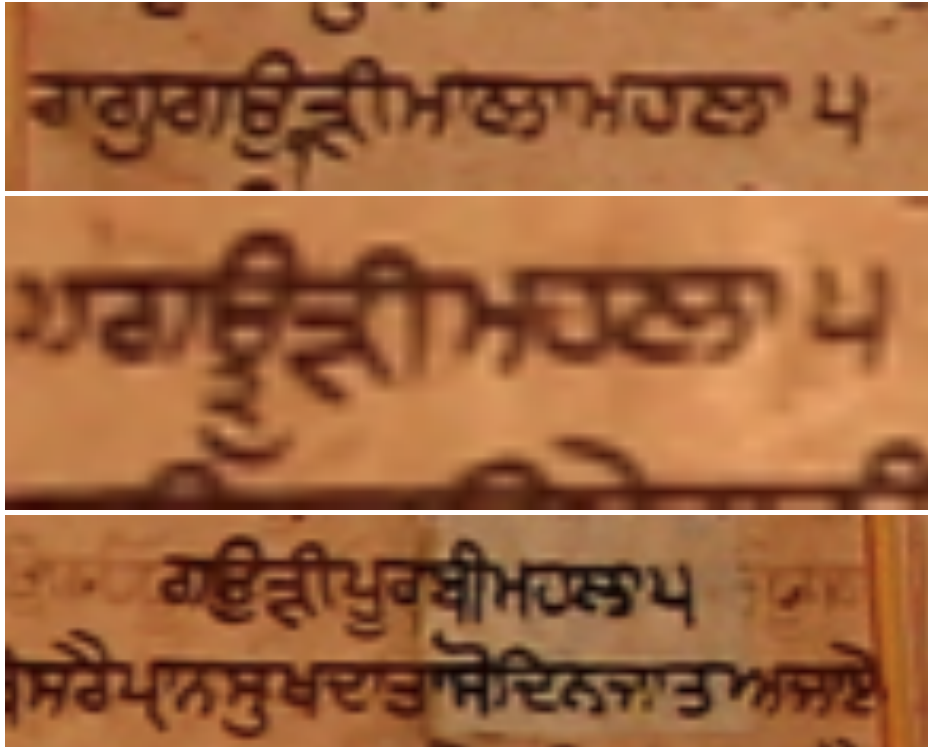 ਰਾਗੁਗਉੜੀਮਾਲਾਮਹਲਾ ੫
ਗਉੜੀਮਹਲਾ ੫
ਗਉੜੀਪੁਰਬੀਮਹਲਾ੫
ਸਰੈਪ੍ਰਾਨਸੁਖਦਾਤਾਸੋਦਿਨਜਾਤਅਜਾਏ